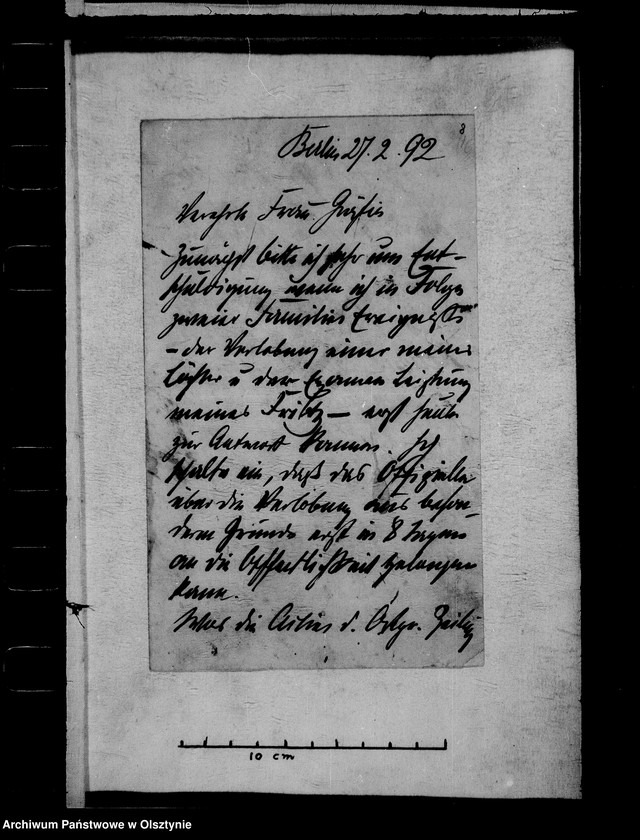 8
Berlin 27.2.92
Verehrte Frau Gräfin
Zunächst bitte ich sehr um Ent-
schuldigung wenn ich in Folge
zweier Familien Ereignisse
- der Verlobung einer meiner
Töchter u der Examen Leistung
meines Fritz - erst heute
zur Antwort komme. Ich
schalte ein, daß das Offizielle
über die Verlobung aus beson-
deren Gründen erst in 8 Tagen
an die Öffentlichkeit gelangen
kann.
Was die Actien d. Ostpr. Zeitung
10 cm
Archiwum Państwowe w Olsztynie